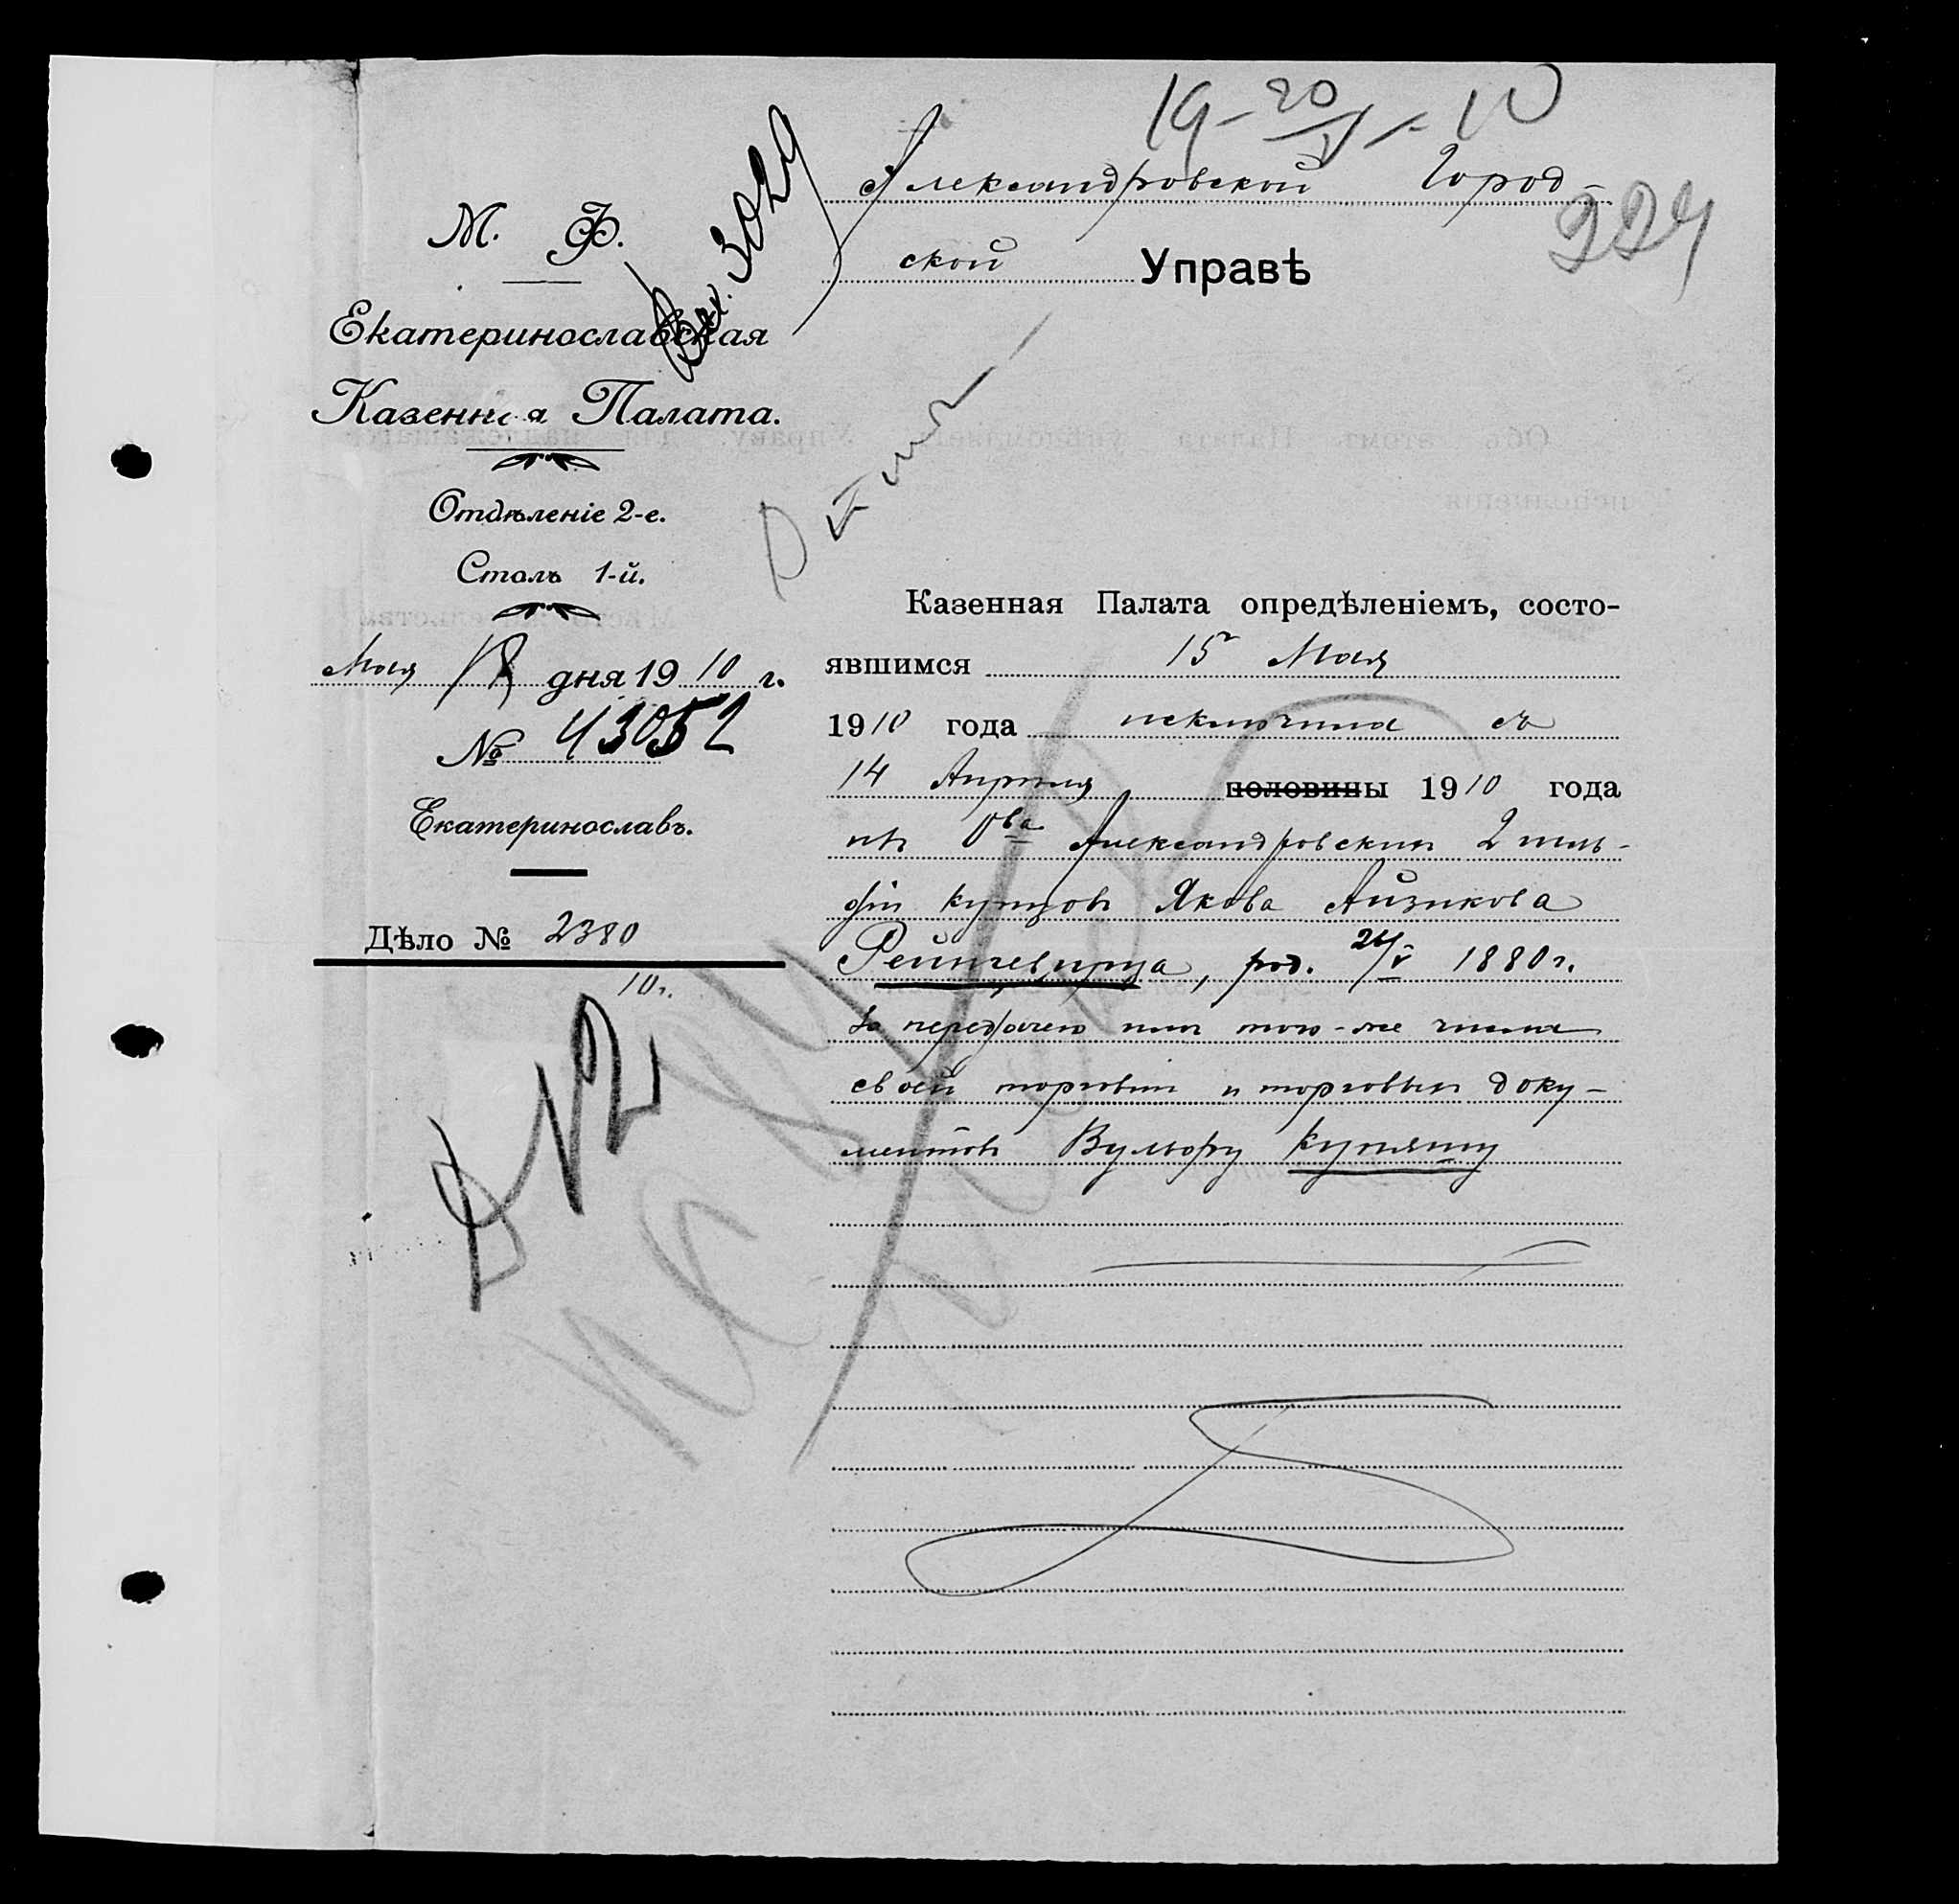 19-20/V-10
Александровской Город-
224
ской Управѣ
Вх. 3029
М. Ф.
Екатеринославская
Казенная Палата.
Отдѣленіе 2-е.
Столъ 1-й.
Мая 18 дня 1910 г.
№ 43052
Екатеринославъ.
Дѣло № 2380
10 г.
Казенная Палата опредѣленіемъ, состо-
явшимся 15 Мая
1910 года исключила съ
14 Апрѣля половины 1910 года
изъ О-ва Александровскихъ 2 гиль-
діи купцовъ Якова Айзикова
Рейнгевирца, род. 24/V 1880 г.
за передачею имъ того-же числа
своей торговли и торговыхъ доку-
ментовъ Вульфу Купляну